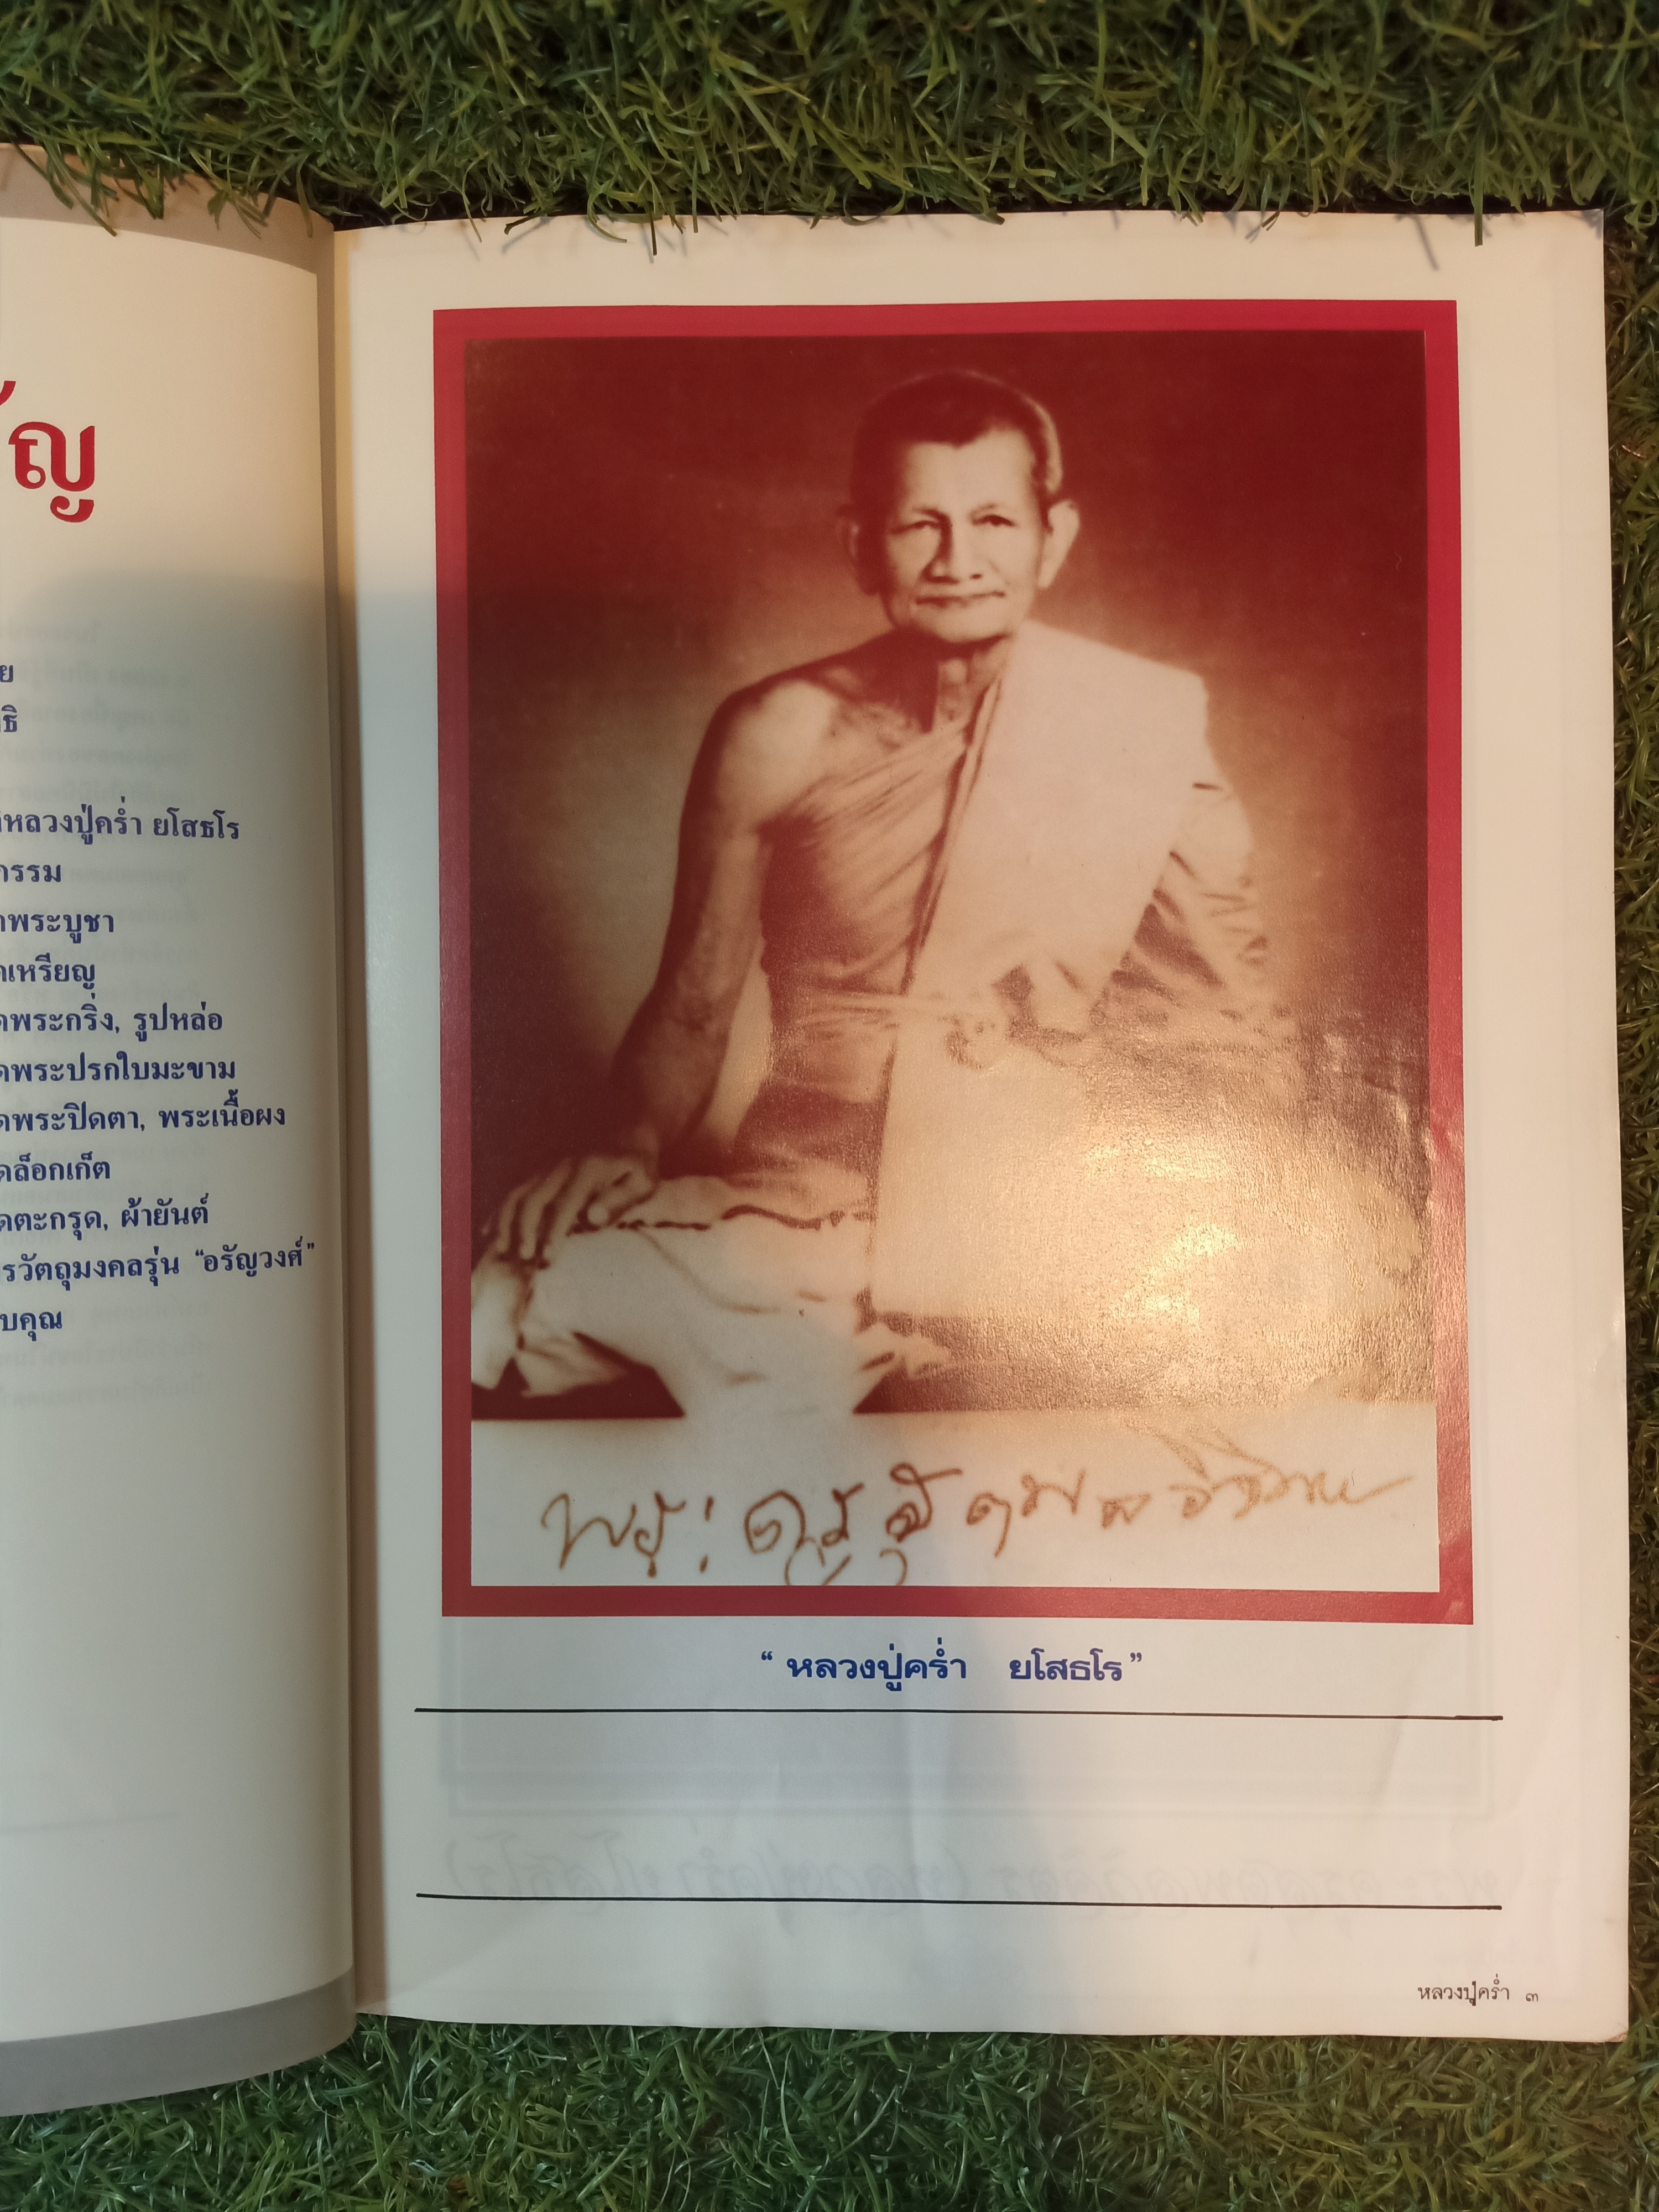 ัญ
ย
ธิ
หลวงปู่คร่ำ ยโสธโร
กรรม
พระบูชา
เหรียญ
พระกริ่ง, รูปหล่อ
ดพระปรกใบมะขาม
ดพระปิดตา, พระเนื้อผง
ดล็อกเก็ต
ดตะกรุด, ผ้ายันต์
รวัตถุมงคลรุ่น “อรัญวงศ์”
บคุณ
พระครู
“ หลวงปู่คร่ำ ยโสธโร ”
หลวงปู่คร่ำ ๓